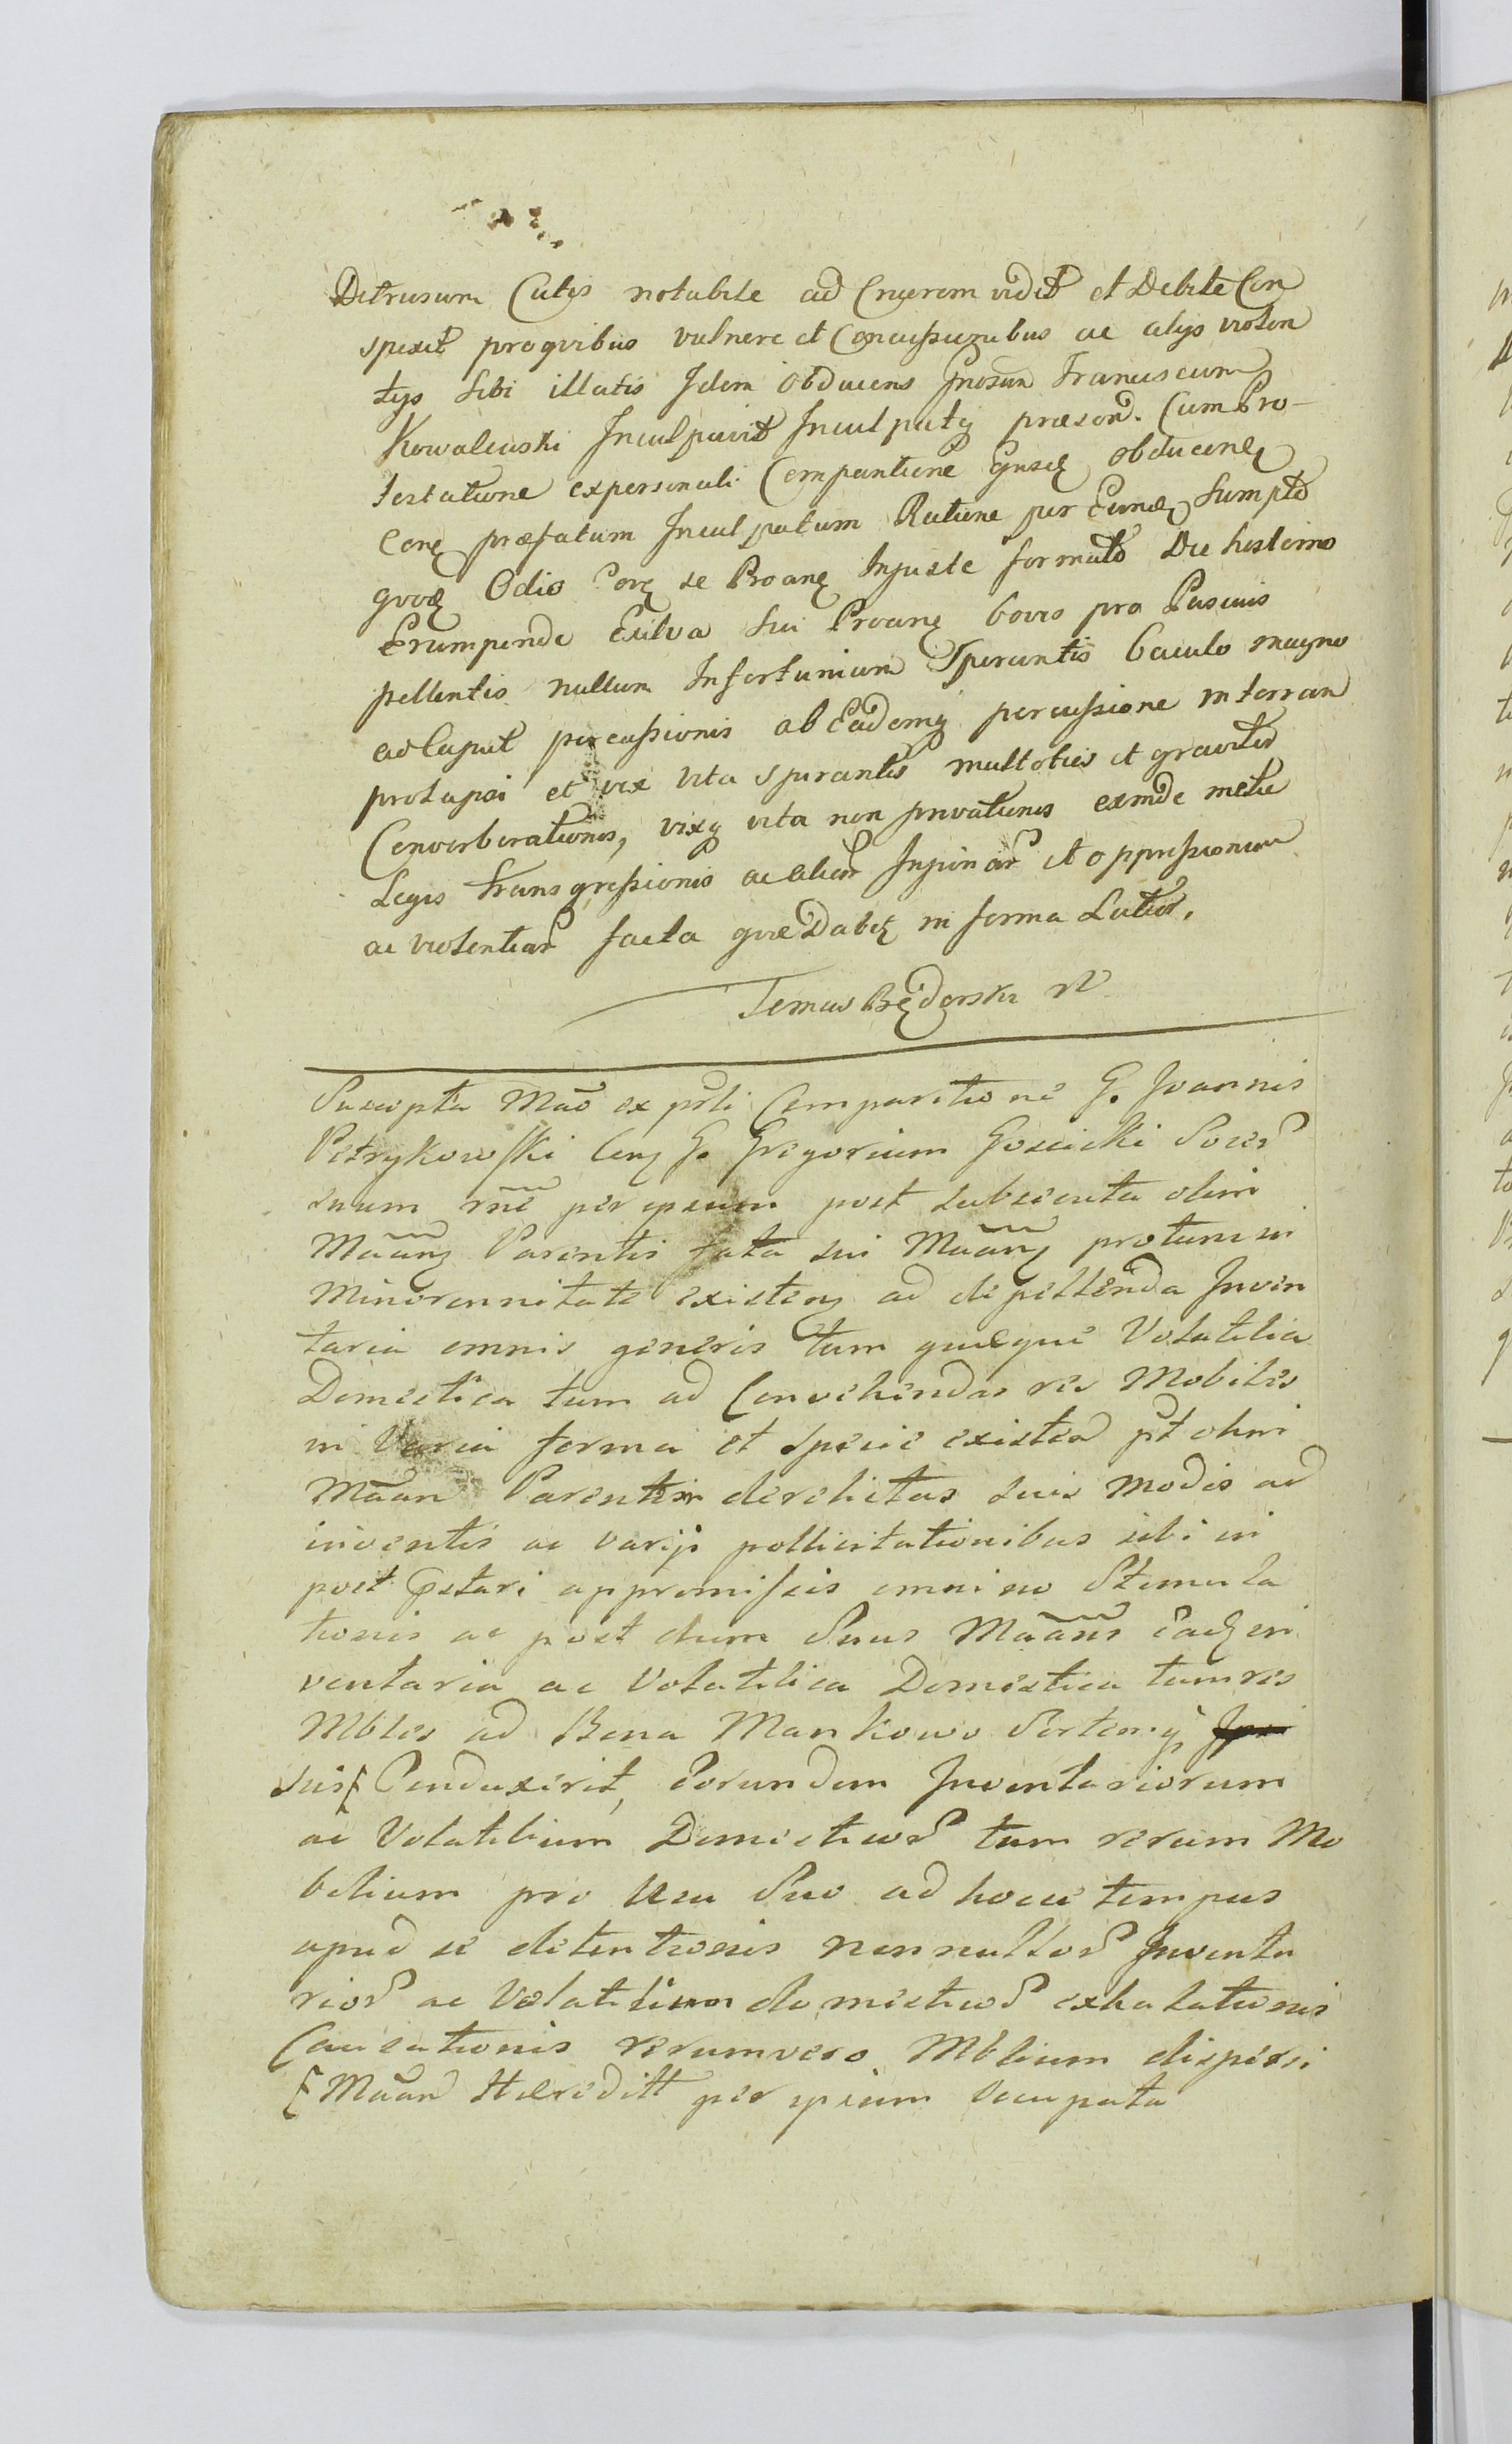 Detrusum Cutis notabile ad Cruorem vidit et Debite Con
spexit pro qvibus vulnere et Concussionibus ac alys violen
tys sibi illatis Idem Obducens Gnosum Franciscum
Kowalewski Inculpavit Inculpatq præsen. Cum Pro-
testatione ex personali Comparitione Gnsq obducenq
Conq præfatum Inculpatum Ratione per Eumdq Sumpto
qvoq Odio Conq se Proanq Injuste formato Die hesterno
Erumpende Exilva sui Proanq boves pro Pascuis
pellentis nullum Infortunium Sperantis baculo magno
ad Caput percussionis ab Eademq percussione in terram
prolapsi et vix vita spirantis multoties et graviter
Converberationis, vixq vita non privationis exinde metu
Legis transgressionis ac aliar Injuriar et oppressionum
ac violentiar facta qvæ Dabit in forma Latior,
Tomas Będorski
Suscepta Mão ex prli Comparitione G. Joannis
Petrykowski Conq G. Gregorium Gościcki Socer
suum rñe per ipsum post subsecuta olim
Mãanq Parentis fata sui Mãanq protunc in
Minorennitate existenq ad depellenda Inven
taria omnis generis tum quæque Volatilia
Domestica tum ad Convehendas res Mobiles
in Varia forma et specie existen pt olim
Mãan Parentem derelictas suis modis ad
inventis ac varijs pollicitationibus sibi in
post Pstari appromissis omnino Stimula
tionis ac post dum Suus Mãans Eadq in
ventaria ac Volatilica Domestica tum res
Mbles ad Bona Mankowo Sortemq
suis Conduxerit, Eorundem Inventariorum
ac Volatilium Domesticor tum rerum Mo
bilium pro Usu Suo ad hocce tempus
apud se detentionis nonnullor Inventa
rior ac Volatilium domesticor exhalationis
Causationis rerumvero Mblium dispersi
Mãan Hæreditt per ipsum Occupata